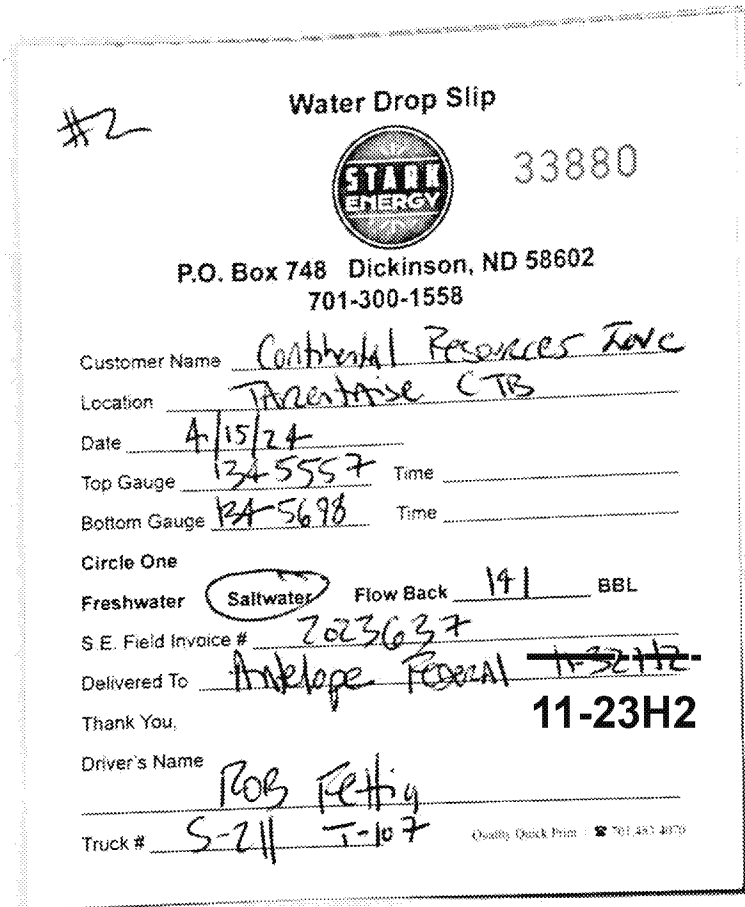 Water Drop Slip
#2
33880
STARK
ENERGY
P.O. Box 748 Dickinson, ND 58602
701-300-1558
Customer Name Continental Resources Inc
Location Tarentaise CTB
Date 4/15/24
Top Gauge 1345557 Time
Bottom Gauge 134-5698 Time
Circle One
Freshwater Saltwater Flow Back 141 BBL
S.E. Field Invoice # 2023637
Delivered To Antelope Federal 11-32H2
11-23H2
Thank You,
Driver's Name
Rob Fettig
Truck # S-211 T-107
Quality Quick Print